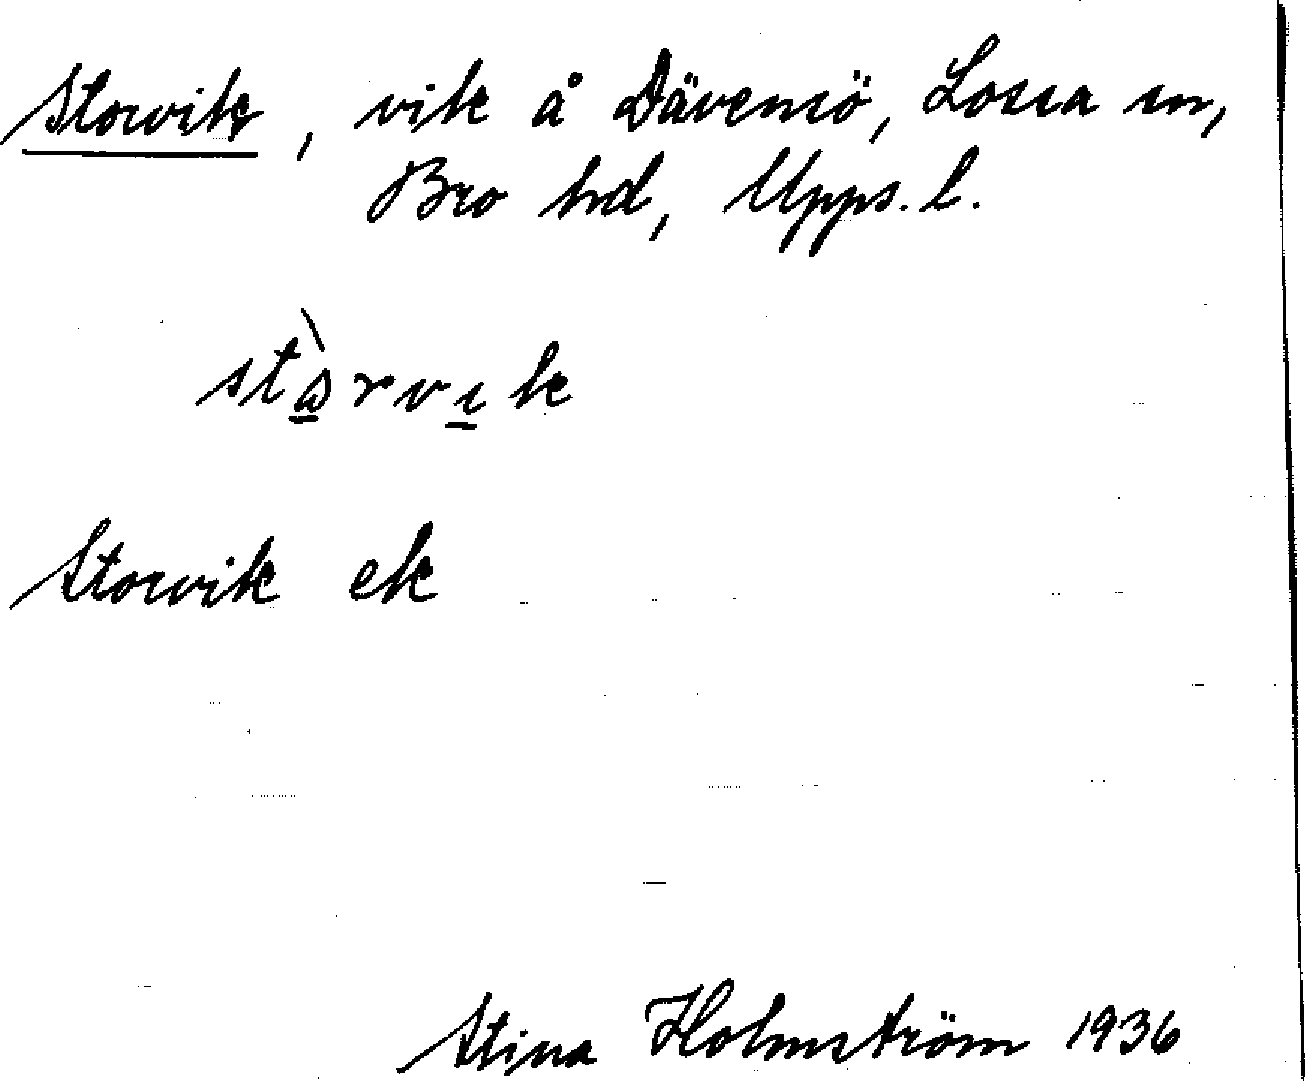 Storvik, vik å Dävensö, Lossa sn,
Bro hd, Upps. l.
stὼ̲rvı̲k
Storvik ek
Stina Holmström 1936